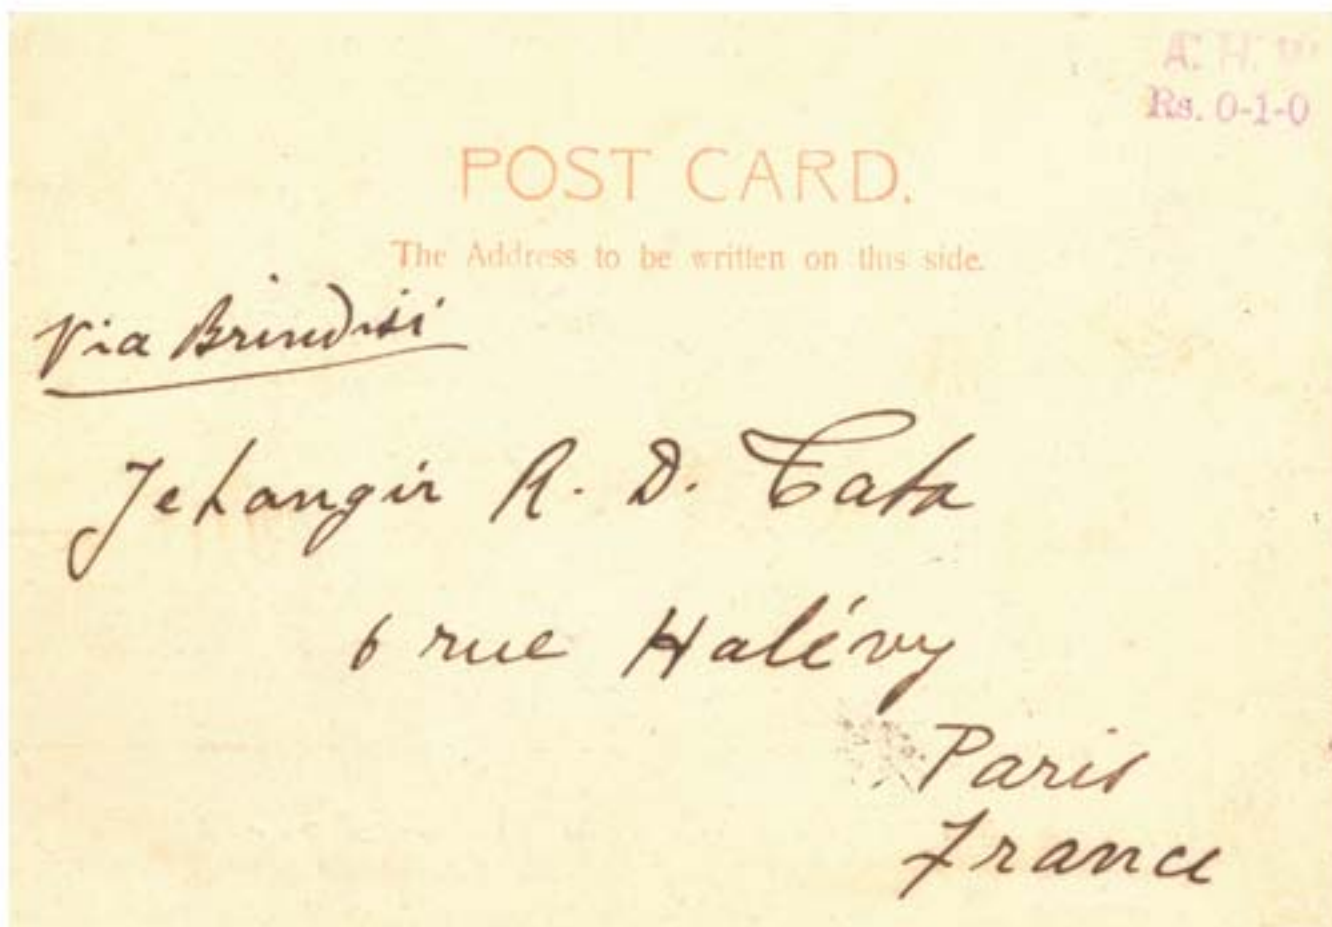 A. H. W
Rs. 0-1-0
POST CARD.
The Address to be written on this side.
Via Brindisi
Jehangir R. D. Tata
6 rue Halévy
Paris
France